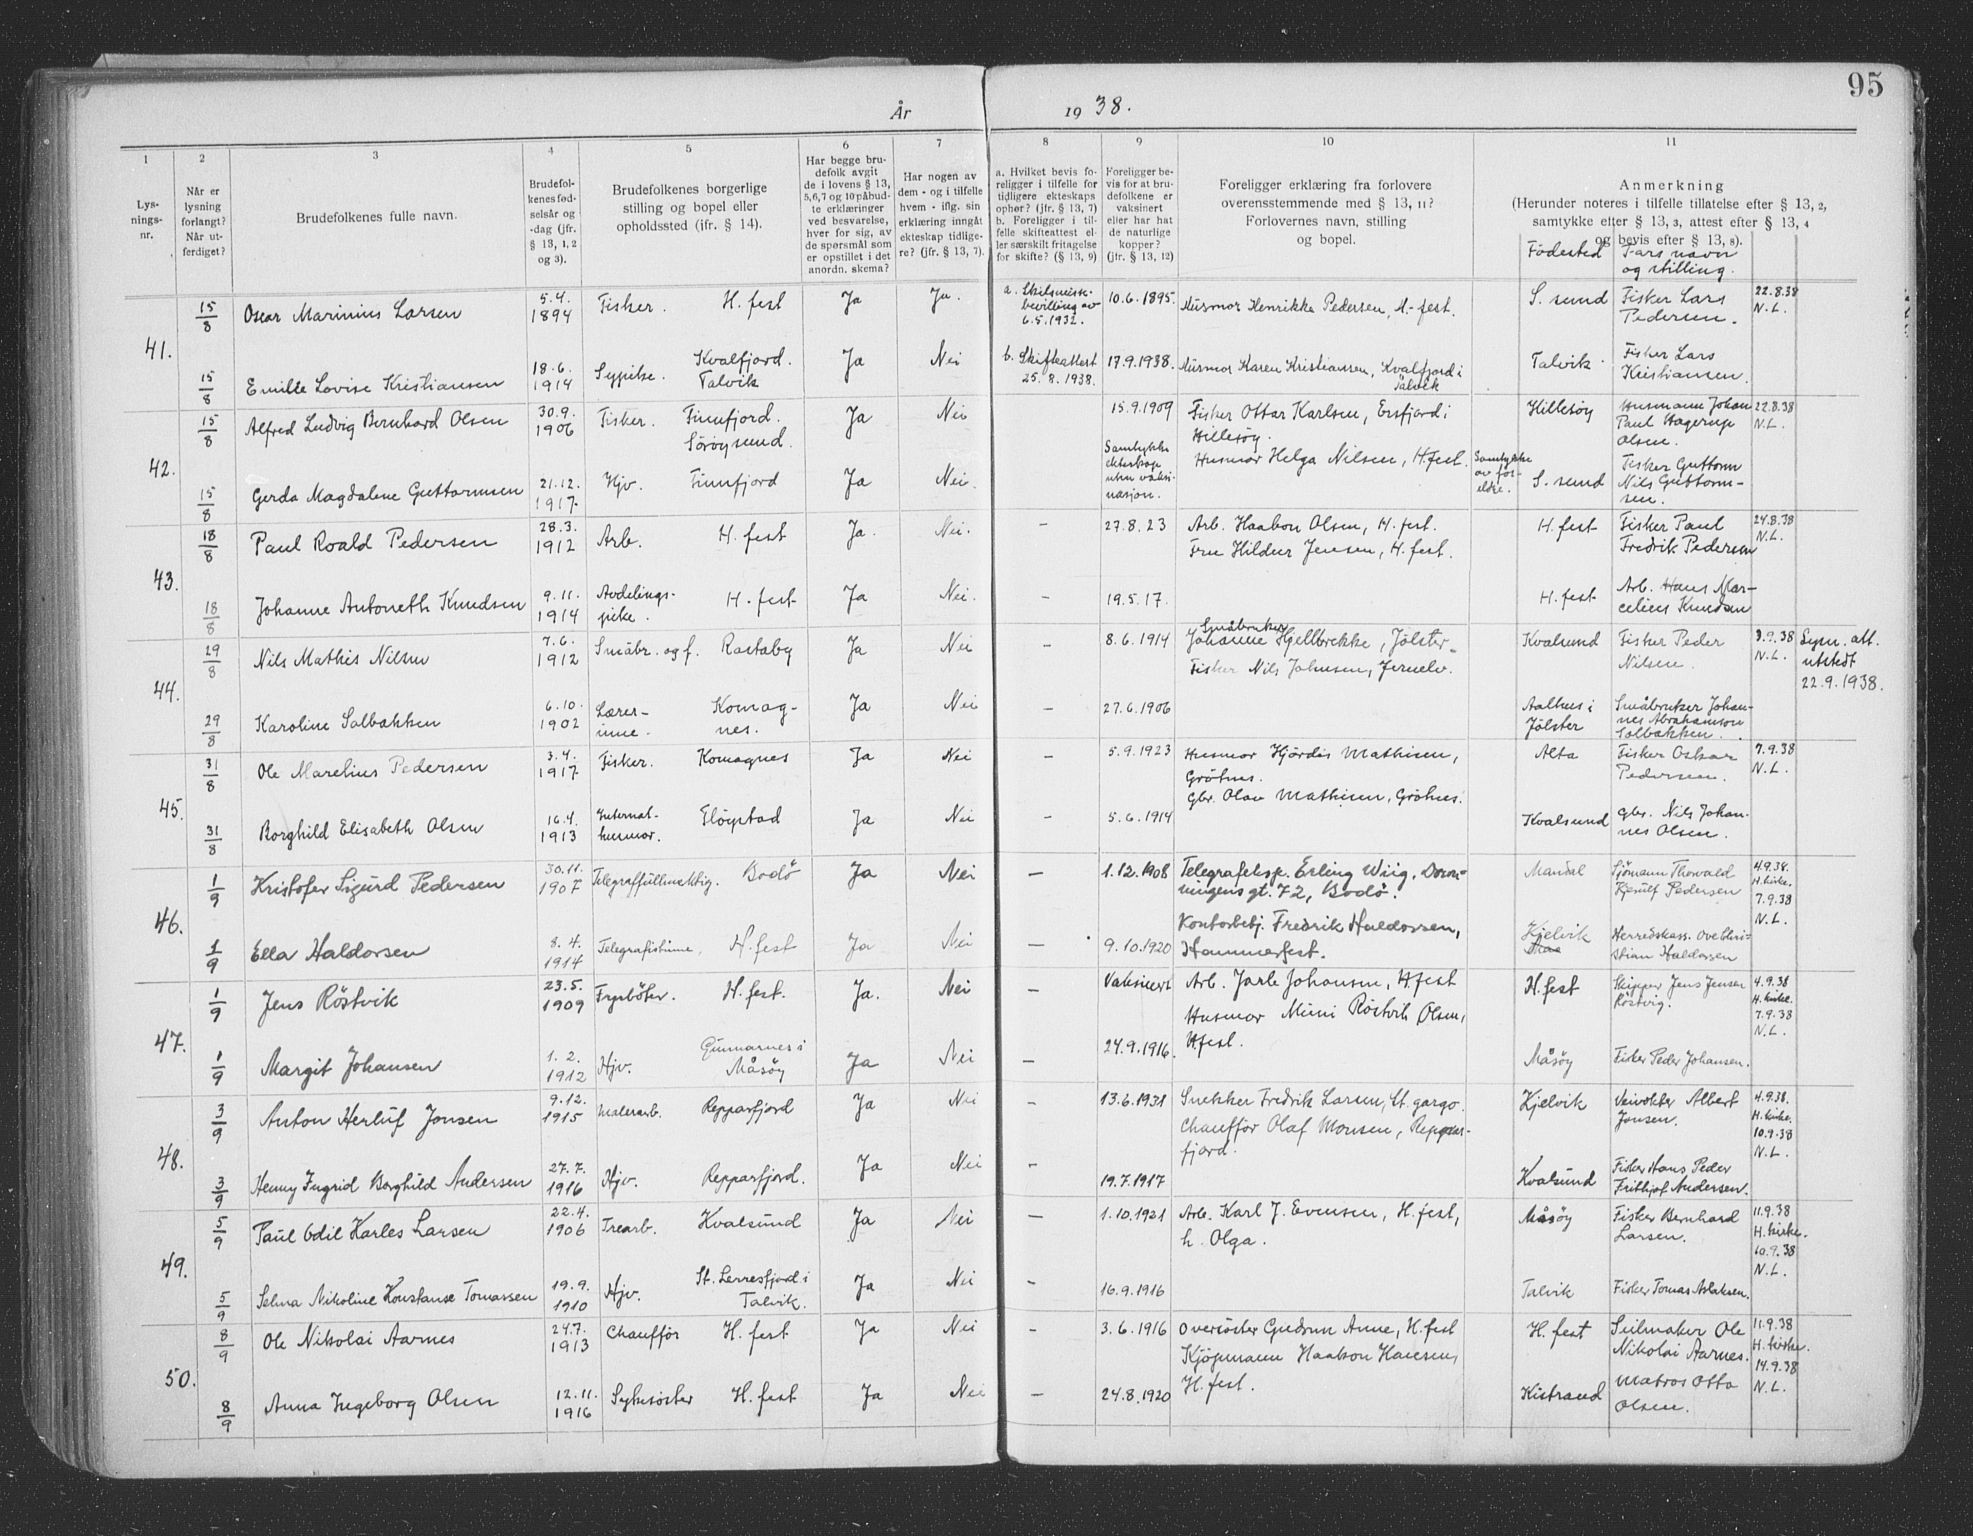 95
År 1938.
1 2 3 4 5 6 7 8 9 10 11
Lys-
nings-
nr.
Når er
lysning
forlangt?
Når ut-
ferdiget?
Brudefolkenes fulle navn.
Brudefol-
kenes fød-
selsår og
-dag (jfr.
§ 13, 1, 2
og 3).
Brudefolkenes borgerlige
stilling og bopel eller
opholdssted (jfr. § 14).
Har begge bru-
defolk avgit
de i lovens § 13,
5,6,7 og 10 påbud-
te erklæringer
ved besvarelse,
hver for sig, av
de spørsmål som
er opstillet i det
anordn. skema?
Har nogen av
dem - og i tilfelle
hvem - iflg. sin
erklæring inngått
ekteskap tidlige-
re? (jfr. § 13, 7).
a. Hvilket bevis fo-
religger i tilfelle for
tidligere ekteskaps
ophør? (jfr. § 13, 7)
b. Foreligger i til-
felle skifteattest el-
ler særskilt fritagelse
for skifte? (§ 13, 9)
Foreligger be-
vis for at bru-
defolkene er
vaksinert
eller har hat
de naturlige
kopper?
(jfr. § 13, 12)
Foreligger erklæring fra forlovere
overensstemmende med § 13, 11?
Forlovernes navn, stilling
og bopel.
Anmerkning
(Herunder noteres i tilfelle tillatelse efter § 13, 2,
samtykke efter § 13, 3, attest efter § 13, 4
og bevis efter § 13, 8).
Födested
Fars navn
og stilling.
41.
15/8 Oscar Marinius Larsen 5.4. 1894 Fisker. H. fest Ja Ja.
a. Skilsmisse-
bevilling av
6.5.1932.
10.6.1895. Husmor Henrikke Pedersen, H.-fest. S. sund
Fisker Lars
Pedersen.
22.8.38
N.L.
15/8 Emilie Lovise Kristiansen 18.6. 1914 Sypike.
Kvalfjord.
Talvik
Ja Nei
b. Skifteattest
25.8.1938.
17.9.1938.
Husmor Karen Kristiansen, Kvalfjord i
Talvik
Talvik.
Fisker Lars
Kristiansen.
42.
15/8 Alfred Ludvig Bernhard Olsen 30.9. 1906 Fisker.
Finnfjord.
Söröysund.
Ja Nei 15.9.1909
Fisker Ottar Karlsen, Ersfjord i
Hillesöy.
Husmor Helga Nilsen, H.fest.
Hillesöy
Husmann Johan
Paul Hagerup
Olsen.
22.8.38
N.L.
15/8 Gerda Magdalene Guttormsen 21.12. 1917. Hjv. Finnfjord Ja Nei.
Samtykke
ekteskap
uten vaksi-
nasjon.
Samtykke
av for-
eldre.
S. sund
Fisker Guttorm
Nils Guttorm-
sen.
43.
18/8 Paul Roald Pedersen 28.3. 1912 Arb. H. fest Ja. Nei. – 27.8.23
Arb. Haakon Olsen, H. fest.
Fru Hildur Jensen, H. fest.
H. fest
Fisker Paul
Fredrik Pedersen
24.8.38
N.L.
18/8 Johanne Antoneth Knudsen 9.11. 1914
Avdelings-
pike.
H. fest Ja Nei. – 19.5.17. H. fest
Arb. Hans Mar-
celius Knudsen
44.
29/8 Nils Mathis Nilsen 7.6. 1912 Småbr. og f. Rastaby Ja Nei – 8.6.1914
Småbruker
Johanne Hjellbrekke, Jölster.
Fisker Nils Johnsen,
Kvalsund
Fisker Peder
Nilsen.
9.9.38
N.L.
att.
utstedt
22.9.1938.
29/8 Karoline Solbakken 6.10. 1902
Lærer-
inne.
Komag-
nes.
Ja Nei – 27.6.1906
Aalhus i
Jölster
Småbruker Johan-
nes Abrahamson
Solbakken.
45.
31/8 Ole Marelius Pedersen 3.4. 1917 Fisker. Komagnes Ja Nei – 5.9.1923
Husmor Hjördis Mathisen,
Grötnes.
Gbr. Olav Mathisen, Grötnes.
Alta
Fisker Oskar
Pedersen.
7.9.38
N.L.
31/8 Borghild Elisabeth Olsen 16.4. 1913
Internat-
husmor.
Ja Nei – 5.6.1914 Kvalsund
Gbr. Nils Johan-
nes Olsen.
46.
1/9 Kristofer Sigurd Pedersen 30.11. 1907 Telegraffullmektig. Bodö Ja Nei – 1.12.1908
Telegrafeksp. Erling Wiig, Dron-
ningens gt. 72, Bodö.
Kontorbetj. Fredrik Haldorsen,
Hammerfest.
Mandal
Sjömann Thorvald
Kjerulf Pedersen
4.9.38.
H.kirke.
7.9.38
N.L.
1/9 Ella Haldorsen 8.4. 1914 Telegrafistinne, H. fest Ja Nei – 9.10.1920
Kjelvik
Herredskass. Ove Chri-
stian Haldorsen
47.
1/9 Jens Röstvik 23.5. 1909 Fyrböter. H. fest. Ja. Nei – Vaksinert
Arb. Jarle Johansen, H fest
Husmor Mimi Röstvik Olsen,
H fest.
H. fest
Skipper Jens Jensen
Röstvig.
4.9.38
H. kirke.
7.9.38
N.L.
1/9 Margit Johansen 1.2. 1912 Hjv.
Gunnarnes i
Måsöy
Ja Nei – 24.9.1916. Måsöy Fisker Peder Johansen.
48.
3/9 Anton Herluf Jonsen 9.12. 1915 Malerarb. Repparfjord Ja Nei – 13.6.1931
Snekker Fredrik Larsen, St. gargo.
Chaufför Olaf Monsen, Reppar-
fjord.
Kjelvik
Veivokter Albert
Jonsen.
4.9.38.
H. kirke.
10.9.38
N.L.
3/9 Henny Ingrid Borghild Andersen 27.7. 1916 Hjv. Repparfjord. Ja Nei – 19.7.1917 Kvalsund
Fisker Hans Peder
Frithjof Andersen.
49.
5/9 Paul Odil Karles Larsen 22.4. 1906 Trearb. Kvalsund Ja Nei – 1.10.1921
Arb. Karl J. Evensen, H. fest,
h. Olga.
Måsöy
Fisker Bernhard
Larsen.
11.9.38
H. kirke.
10.9.38
N.L.
5/9 Selma Nikoline Konstanse Tomassen 19.9. 1910 Hjv.
St. Lerresfjord i
Talvik.
Ja Nei – 16.9.1916 Talvik Fisker Tomas Aslaksen.
50.
8/9 Ole Nikolai Aarnes 24.7. 1913 Chaufför H. fest Ja Nei – 3.6.1916
Oversöster Gudrun Anne, H. fest
Kjöpmann Haakon Hansen,
H. fest.
H. fest
Seilmaker Ole
Nikolai Aarnes.
11.9.38
H. kirke.
14.9.38
N.L.
8/9 Anna Ingeborg Olsen 12.11. 1916 Sykesöster H. fest Ja Nei – 24.8.1920 Kistrand
Matros Otto
Olsen.